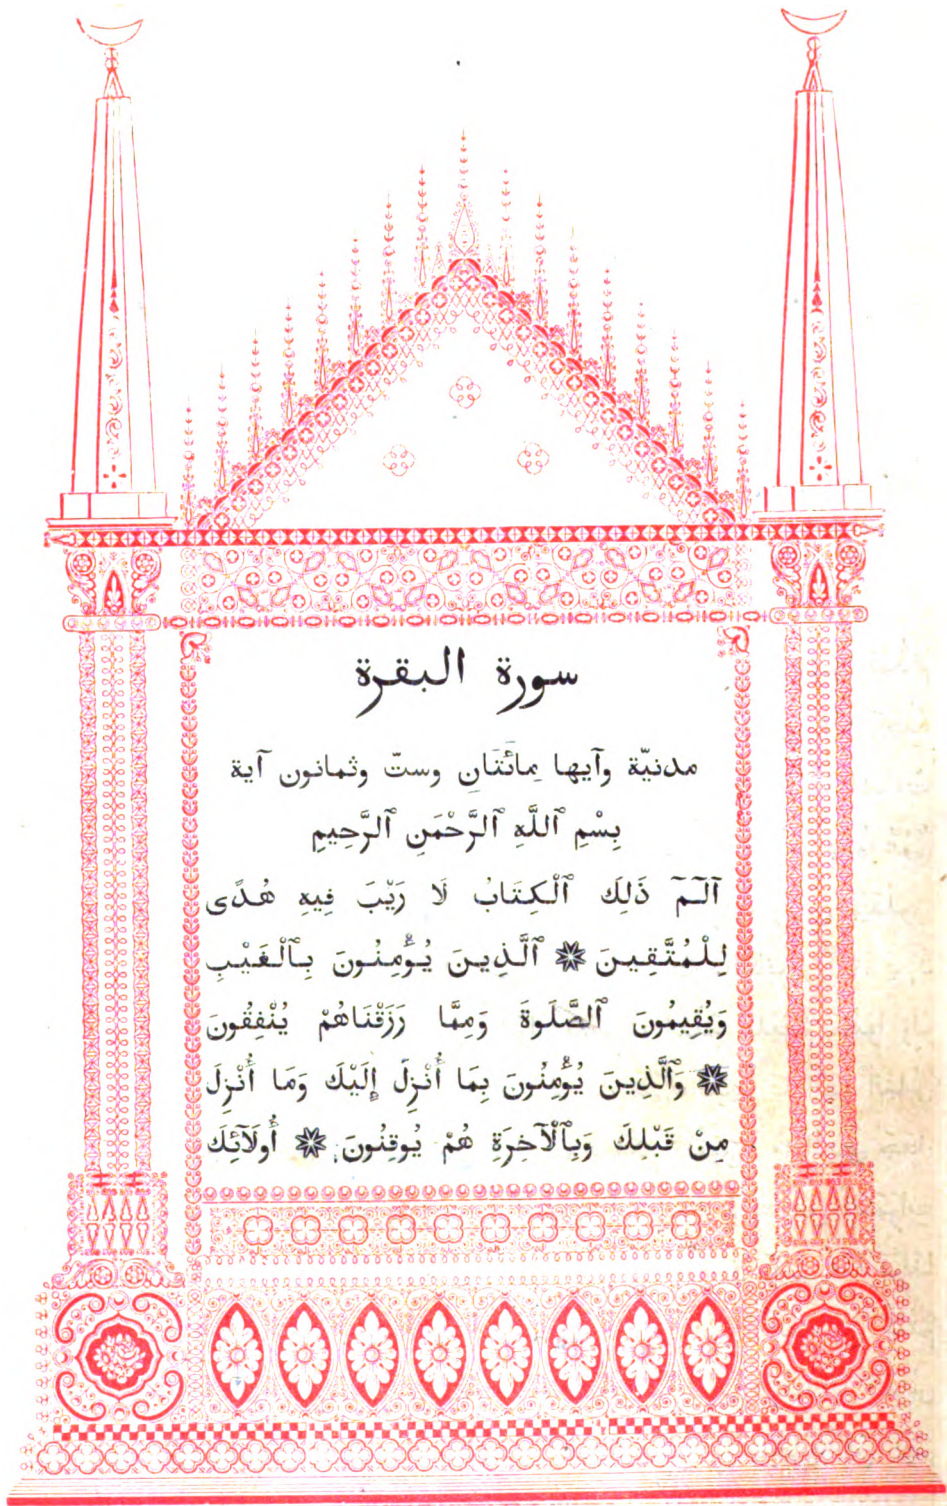 سورة البقرة
مدنيّة وآيها مِائَتَانِ وستّ وثمانون آية
بِسْمِ ٱللَّهِ ٱلرَّحْمَنِ ٱلرَّحِيمِ
آلٓمٓ ذَلِكَ ٱلْكِتَابُ لَا رَيْبَ فِيهِ هُدًى
لِلْمُتَّقِينَ ۞ ٱلَّذِينَ يُؤْمِنُونَ بِٱلْغَيْبِ
وَيُقِيمُونَ ٱلصَّلَوةَ وَمِمَّا رَزَقْنَاهُمْ يُنْفِقُونَ
۞ وَٱلَّذِينَ يُؤْمِنُونَ بِمَا أُنْزِلَ إِلَيْكَ وَمَا أُنْزِلَ
مِنْ قَبْلِكَ وَبِٱلْآخِرَةِ هُمْ يُوقِنُونَ ۞ أُولَآئِكَ